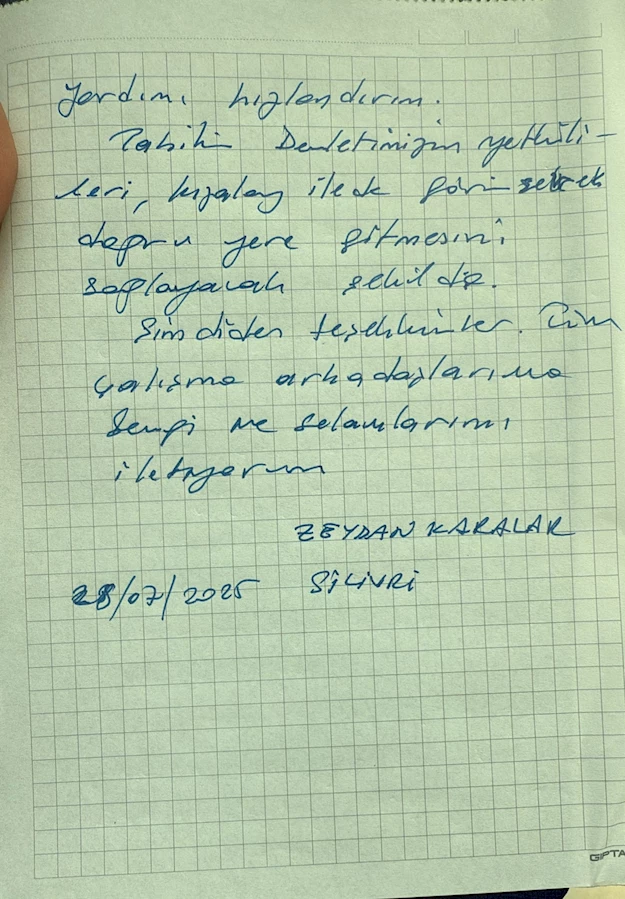 Yardımı hızlandırın.
Tabiki Devletimizin yetkili-
leri, kızılay ile de görüşerek
doğru yere gitmesini
sağlayacak şekilde.
Şimdiden teşekkürler. Tüm
çalışma arkadaşlarıma
Sevgi ve selamlarımı
iletiyorum
ZEYDAN KARALAR
28/07/2025 SİLİVRİ